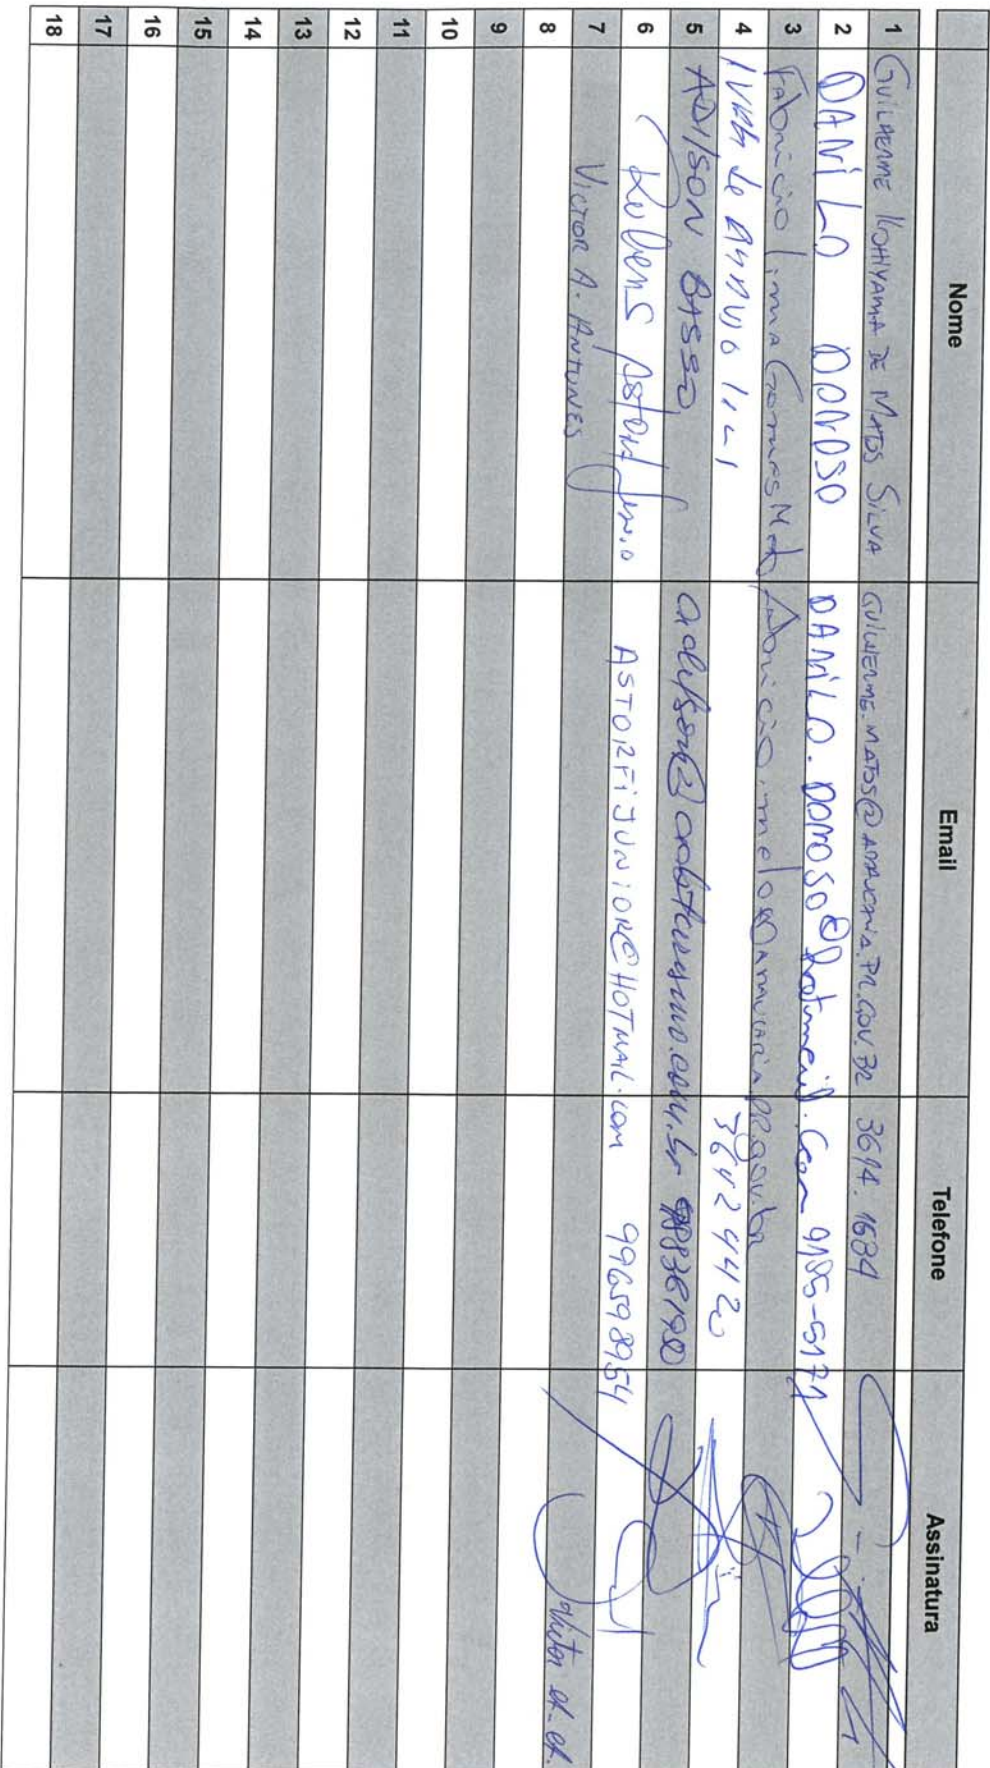 Nome Email Telefone Assinatura
1 GUILHERME DE MATOS SILVA GUILHERME.MATOS@ARAUCARIA.PR.GOV.BR 3614.1684
2 DANILO DONOSO DANILO.DONOSO@hotmail.com 9185-5171
3 Fabricio Lima Gomes Melo fabricio.melo@araucaria.pr.gov.br
4 36424420
5 ADILSON BASSO
6 Rubens Astorfi Junio ASTORFIJUNIOR@HOTMAIL.com 996598954
7 VICTOR A. ANTUNES Victor
8
9
10
11
12
13
14
15
16
17
18